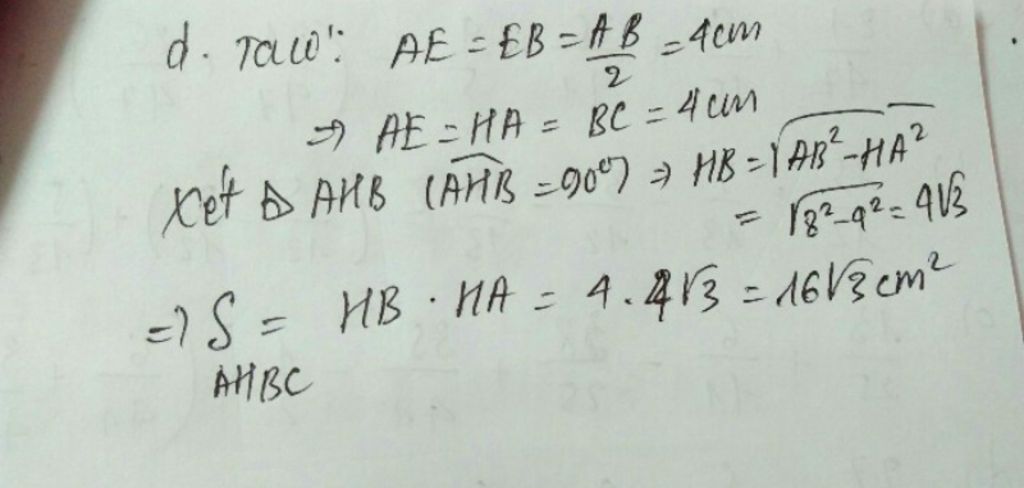 d. Ta có: AE = EB = AB/2 = 4cm
⇒ AE = HA = BC = 4cm
Xét Δ AHB (AHB̂ = 90°) ⇒ HB = √(AB² - HA²)
= √(8² - 4²) = 4√3
⇒ S = HB . HA = 4 . 4√3 = 16√3 cm²
AHBC